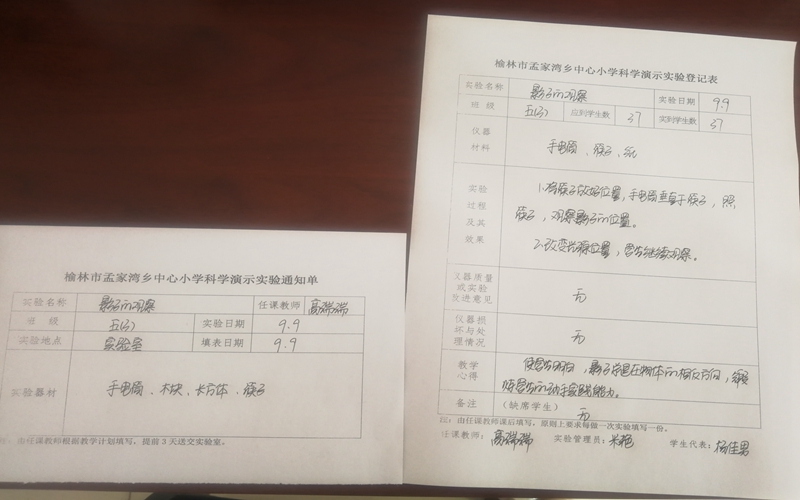 榆林市孟家湾乡中心小学科学演示实验通知单
实验名称 影子的观察 任课教师 高瑞瑞
班 级 五(3) 实验日期 9.9
实验地点 实验室 填表日期 9.9
实验器材 手电筒、木块、长方体、筷子
注：由任课教师根据教学计划填写，提前3天送交实验室。
榆林市孟家湾乡中心小学科学演示实验登记表
实验名称 影子的观察 实验日期 9.9
班 级 五(3) 应到学生数 37 实到学生数 37
仪器
材料
手电筒、筷子、纸
实验
过程
及其
效果
1.将筷子放好位置,手电筒垂直于筷子,照
筷子,观察影子的位置。
2.改变光源位置,学生继续观察。
仪器质量
或实验
改进意见
无
仪器损
坏与处
理情况
无
教学
心得
使学生明白,影子总是在物体的相反方向,锻
炼学生的动手实践能力。
备注 （缺席学生） 无
注：由任课教师课后填写，原则上要求每做一次实验填写一份。
任课教师：高瑞瑞 实验管理员：米艳 学生代表：杨佳男